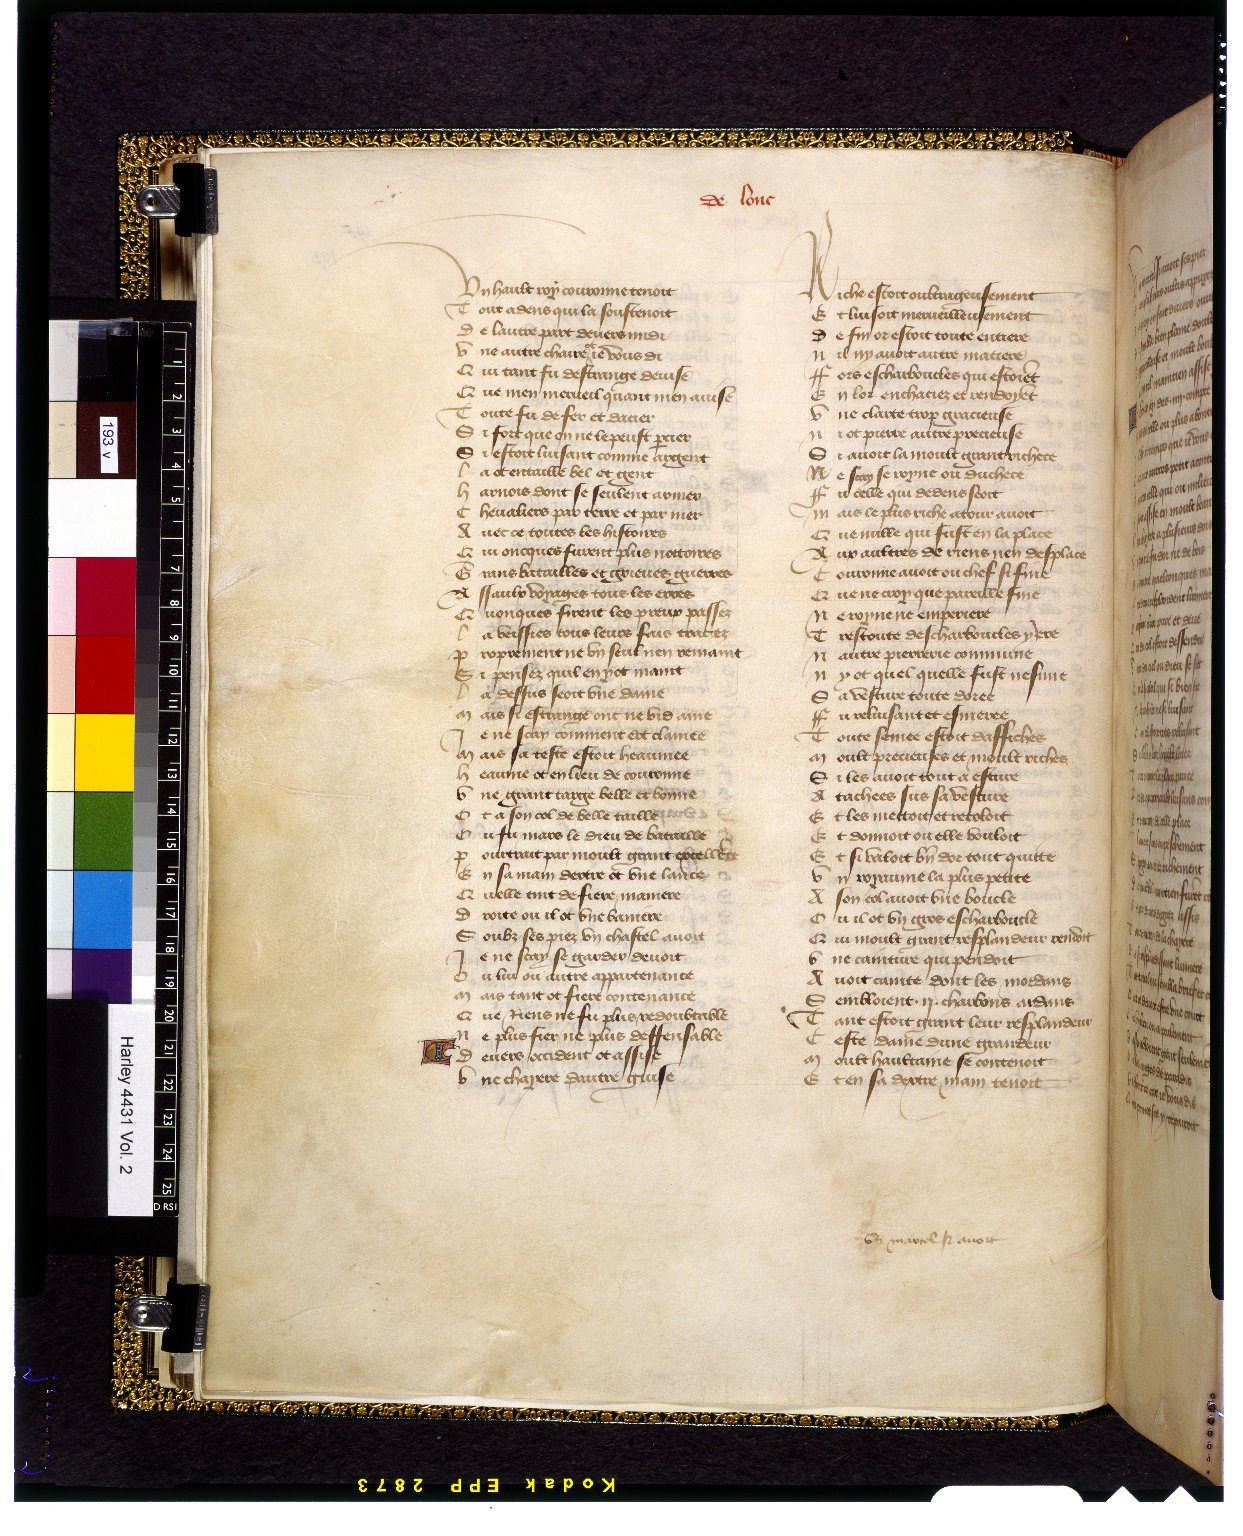 de lonc
Un hault roy couronne tenoit
Tout adens qui la soustenoit
De lautre part devers midi
Une autre chaiere ot ie vous di
Qui tant fu destrange devise
Que men merueil quant men auise
Toute fu de fer et dacier
Si fort que on ne le peust percier
Si estoit luisant comme argent
La ot entaille bel et gent
Harnois dont se seulent armer
Cheualiers par terre et par mer
Auec ce toutes les histoires
Qui oncques furent plus nottoires
Grans batailles et grieues guerres
Assaulx voyages tous les erres
Quonques firent les preux passez
La veissies tous leurs fais tracez
Proprement ne vn seul nen remaint
Si pensez quil en y ot maint
La dessus seoit vne dame
Mais si estrange ont ne vid ame
Je ne scay comment ert clamee
Mais sa teste estoit heaumee
Heaume ot en lieu de couronne
Une grant targe belle et bonne
Ot a son col de belle taille
Ou fu mars le dieu de bataille
Pourtrait par moult grant excellence
En sa main dextre ot vne lance
Quelle tint de fiere maniere
Droite ou il ot vne baniere
Soubz ses piez vn chastel auoit
Je ne scay se garder deuoit
Ou lui ou autre appartenance
Mais tant ot fiere contenance
Que riens ne fu plus redoubtable
Ne plus fier ne plus deffensable
Deuers occident ot assise
Une chayere dautre guise
Riche estoit oultrageusement
Et luisoit merueilleusement
De fin or estoit toute entiere
Nil ny auoit autre matiere
Ffors escharboucles qui estoient
En lor enchaciez et rendoyent
Une clarte trop gracieuse
Ni ot pierre autre precieuse
Si auoit la moult grant richece
Ne scay se royne ou duchece
Ffu celle qui dedens seoit
Mais le plus riche atour auoit
Que nulle qui fust en la place
Aux aultres de riens nen desplace
Couronne auoit ou chef si fine
Que ne croy que pareille fine
Ne royne ne emperiere
Trestoute descharboucles yere
Nautre pierrerie commune
Ny ot quel quelle fust nesune
Sa vesture toute doree
Ffu reluisant et esmeree
Toute semee estoit daffiches
Moult precieuses et moult riches
Si les auoit tout a esture
Atachees sus sa vesture
Et les mettoit et retoloit
Et donnoit ou elle vouloit
Et si valoit bien dor tout quitte
Un royaume la plus petite
A son col auoit vne boucle
Ou il ot vn gros escharboucle
Qui moult grant resplandeur rendoit
Une cainture qui pendoit
Auoit cainte dont les mordans
Sembloient .ii. charbons ardans
Tant estoit grant leur resplandeur
Ceste dame dune grandeur
Moult haultaine se contenoit
Et en sa dextre main tenoit
193 v
Harley 4431 Vol. 2
Kodak EPP 2873